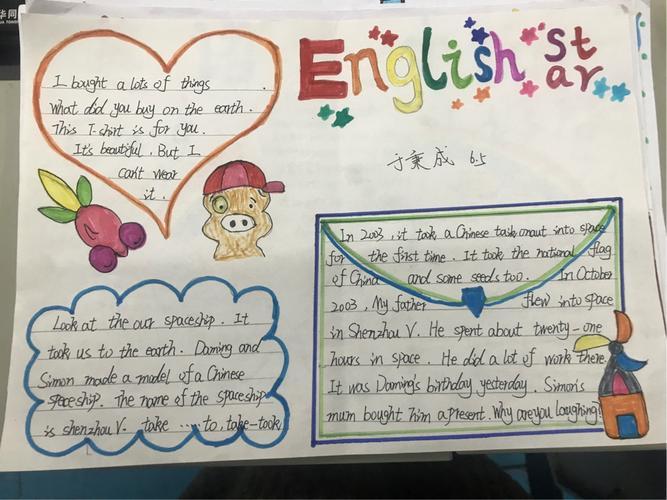 English star
I bought a lots of things .
What did you buy on the earth .
This T-shirt is for you .
It's beautiful . But I
can't wear
it .
于秉成 6.5
In 2003 , it took a Chinese taskonaut into space
for the first time . It took the national flag
of China and some seeds too . In October
2003 , My father flew into space
in Shenzhou V . He spent about twenty-one
hours in space . He did a lot of work there .
It was Daming's birthday yesterday . Simon's
mum bought him a present . Why are you laughing?
Look at the our spaceship . It
took us to the earth . Daming and
Simon made a model of a Chinese
speceship . The name of the spaceship
is shenzhou V . take ...... to , take-took